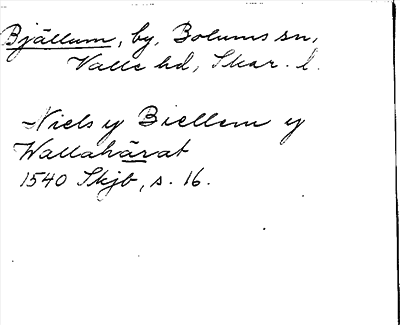 Bjällum, by, Bolums sn,
Valle hd, Skar. l.
Niels y Biellem y
Wallahärat
1540 Skjb, s. 16.